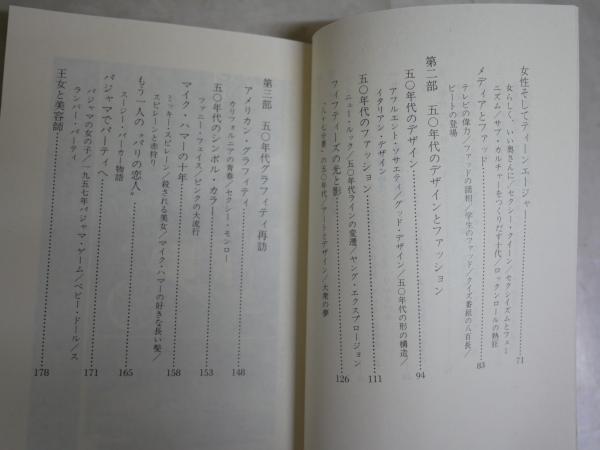 女性そしてティーンエージャー……71
女らしく、いい奥さんに/セクシー・クイーン/セクシズムとフェミ
ニズム/サブ・カルチャーをつくりだす十代/ロックンロールの熱狂
メディアとファッド……83
テレビの偉力/ファッドの諸相/学生のファッド/クイズ番組の八百長/
ビートの登場
第二部 五〇年代のデザインとファッション
五〇年代のデザイン……94
アフルエント・ソサエティ/グッド・デザイン/五〇年代の形の構造/
イタリアン・デザイン
五〇年代のファッション……111
ニュー・ルック/五〇年代ラインの変遷/ヤング・エクスプロージョン
フィフティーズの光と影……126
の五〇年代/アートとデザイン/大衆の夢
第三部 五〇年代グラフィティ再訪
アメリカン・グラフィティ……148
カリフォルニアの青春/セクシー・モンロー
五〇年代のシンボル・カラー……153
ファニー・フェイス/ピンクの大流行
マイク・ハマーの十年……158
ミッキー・スピレーン/殺される美女/マイク・ハマーの好きな長い髪/
スピレーンと赤狩り
もう一人の〝パリの恋人〟……165
スージー・パーカー物語
パジャマでパーティへ……171
パジャマの女の子/一九五七年パジャマ・ゲーム/ベビー・ドール/ス
ランバー・パーティ
王女と美容師……178